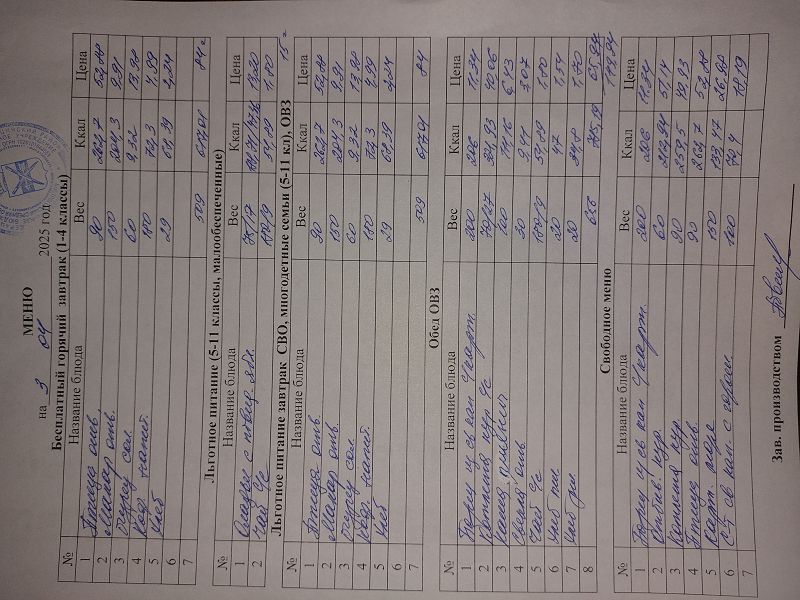 МЕНЮ
на 3 04 2025 год
Бесплатный горячий завтрак (1-4 классы)
№ Название блюда Вес Ккал Цена
1 Птица отв. 90 262,7 52,88
2 Макар отв. 150 204,3 9,91
3 Огурец сол. 60 9.32 13,98
4 Коф. напит. 180 72,3 4.99
5 Хлеб 29 68,39 2,24
6
7 509 84=
Льготное питание (5-11 классы, малообеспеченные)
№ Название блюда Вес Ккал Цена
1 Оладьи с повид. 13,20
2 Чай с/с 1.80
15=
Льготное питание завтрак СВО, многодетные семьи (5-11 кл), ОВЗ
№ Название блюда Вес Ккал Цена
1 Птица отв 90 262,7 52,88
2 Макар отв. 150 204,3 9.91
3 Огурец сол. 60 9.32 13,98
4 Коф. напит. 180 72,3 4,99
5 Хлеб 29 68,39 2,24
6
7 509 84
Обед ОВЗ
№ Название блюда Вес Ккал Цена
1 Борщ из св кап с/карт. 200 206 11.34
2 Котлета кур с/с
3 Каша 100
4 Свекла отв 30
5 Чай с/с 1,80
6 Хлеб пш 20 47 1,54
7 Хлеб рж 20 34,8 1,70
8
Свободное меню
№ Название блюда Вес Ккал Цена
1 Борщ из св кап с/карт. 200 206 11.34
2 кур. 60 57,14
3 Котлета кур 90 259,5
4 Птица отв. 90 262,7 52,88
5 Карт. пюре 150 133,47 26,98
6 св кап с огурц. 100 70,4 18,19
Зав. производством